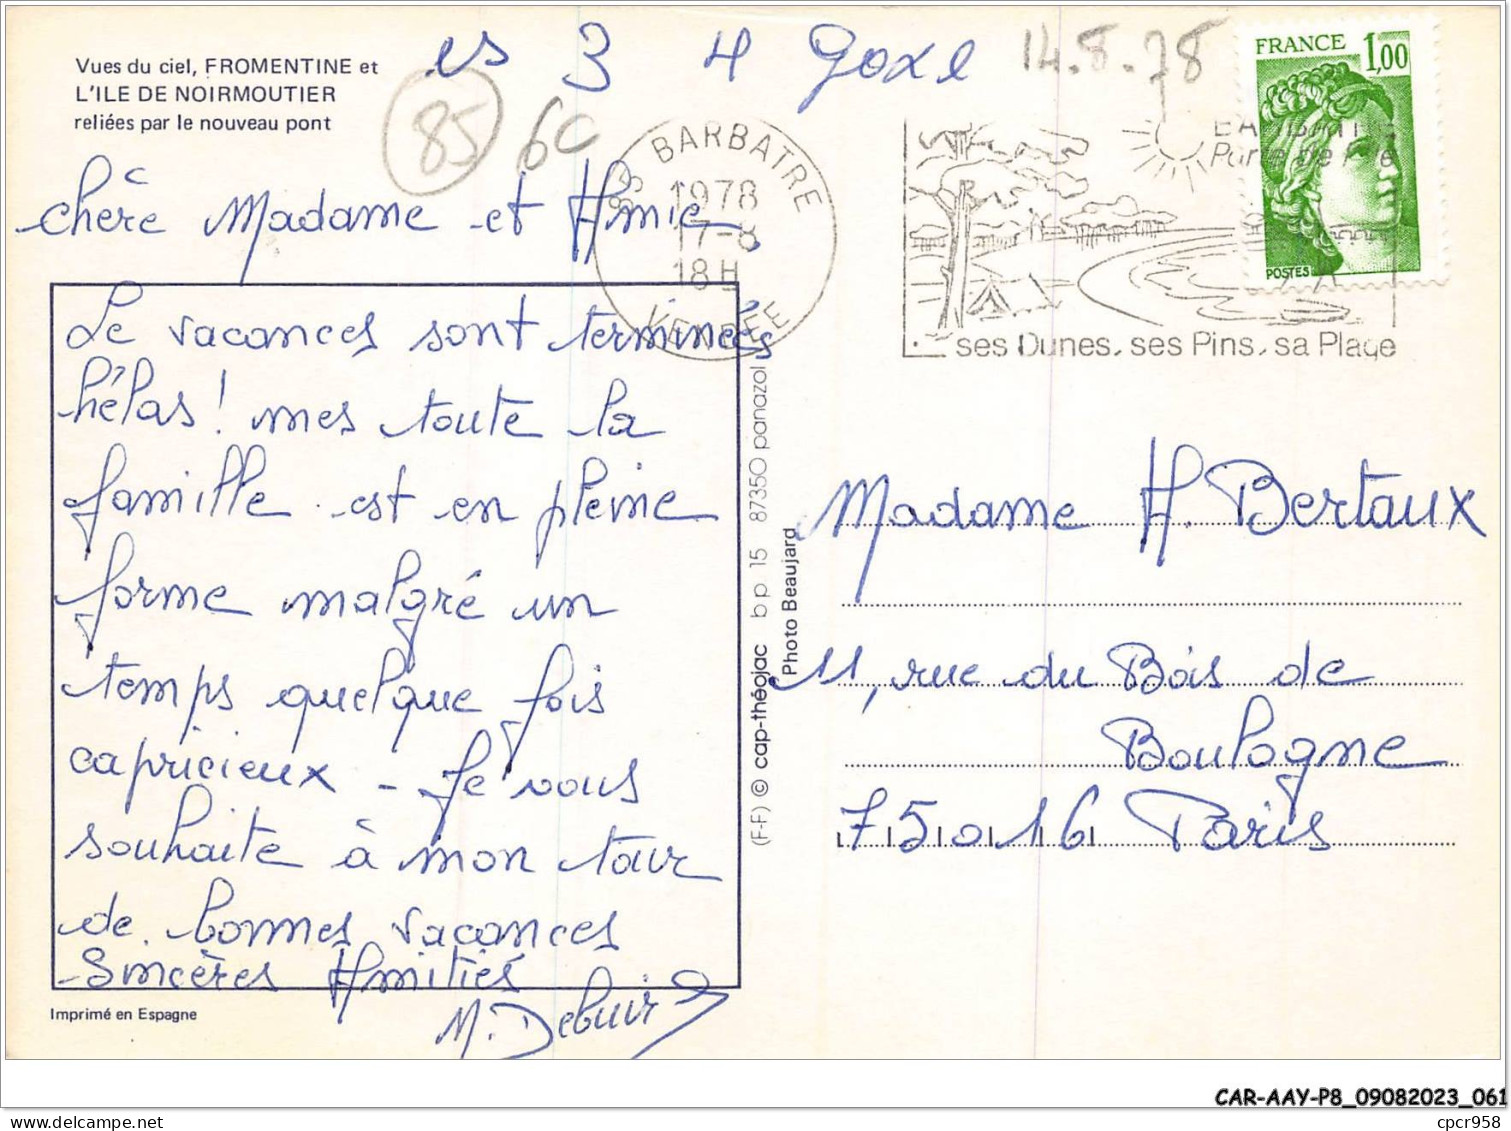 Vues du ciel, FROMENTINE et
L'ILE DE NOIRMOUTIER
reliées par le nouveau pont
es 3 4 goxe 14.8.78
85 6c
85 BARBATRE
1978
17-8
18 H
VENDEE
BARBATRE
Porte de l'Ile
ses Dunes, ses Pins, sa Plage
FRANCE 1,00
POSTES
chère Madame et Amie,
Le vacances sont terminées
hélas! mes toute la
famille est en pleine
forme malgré un
temps quelque fois
capricieux - Je vous
souhaite à mon tour
de bonnes vacances
Sincères Amitiés
M. Debuir
Imprimé en Espagne
(F-F) © cap-théojac bp 15 87350 panazol
Photo Beaujard
Madame H. Bertaux
11, rue du Bois de
Boulogne
75016 Paris
CAR-AAY-P8_09082023_061
delcampe.net
cpcr958